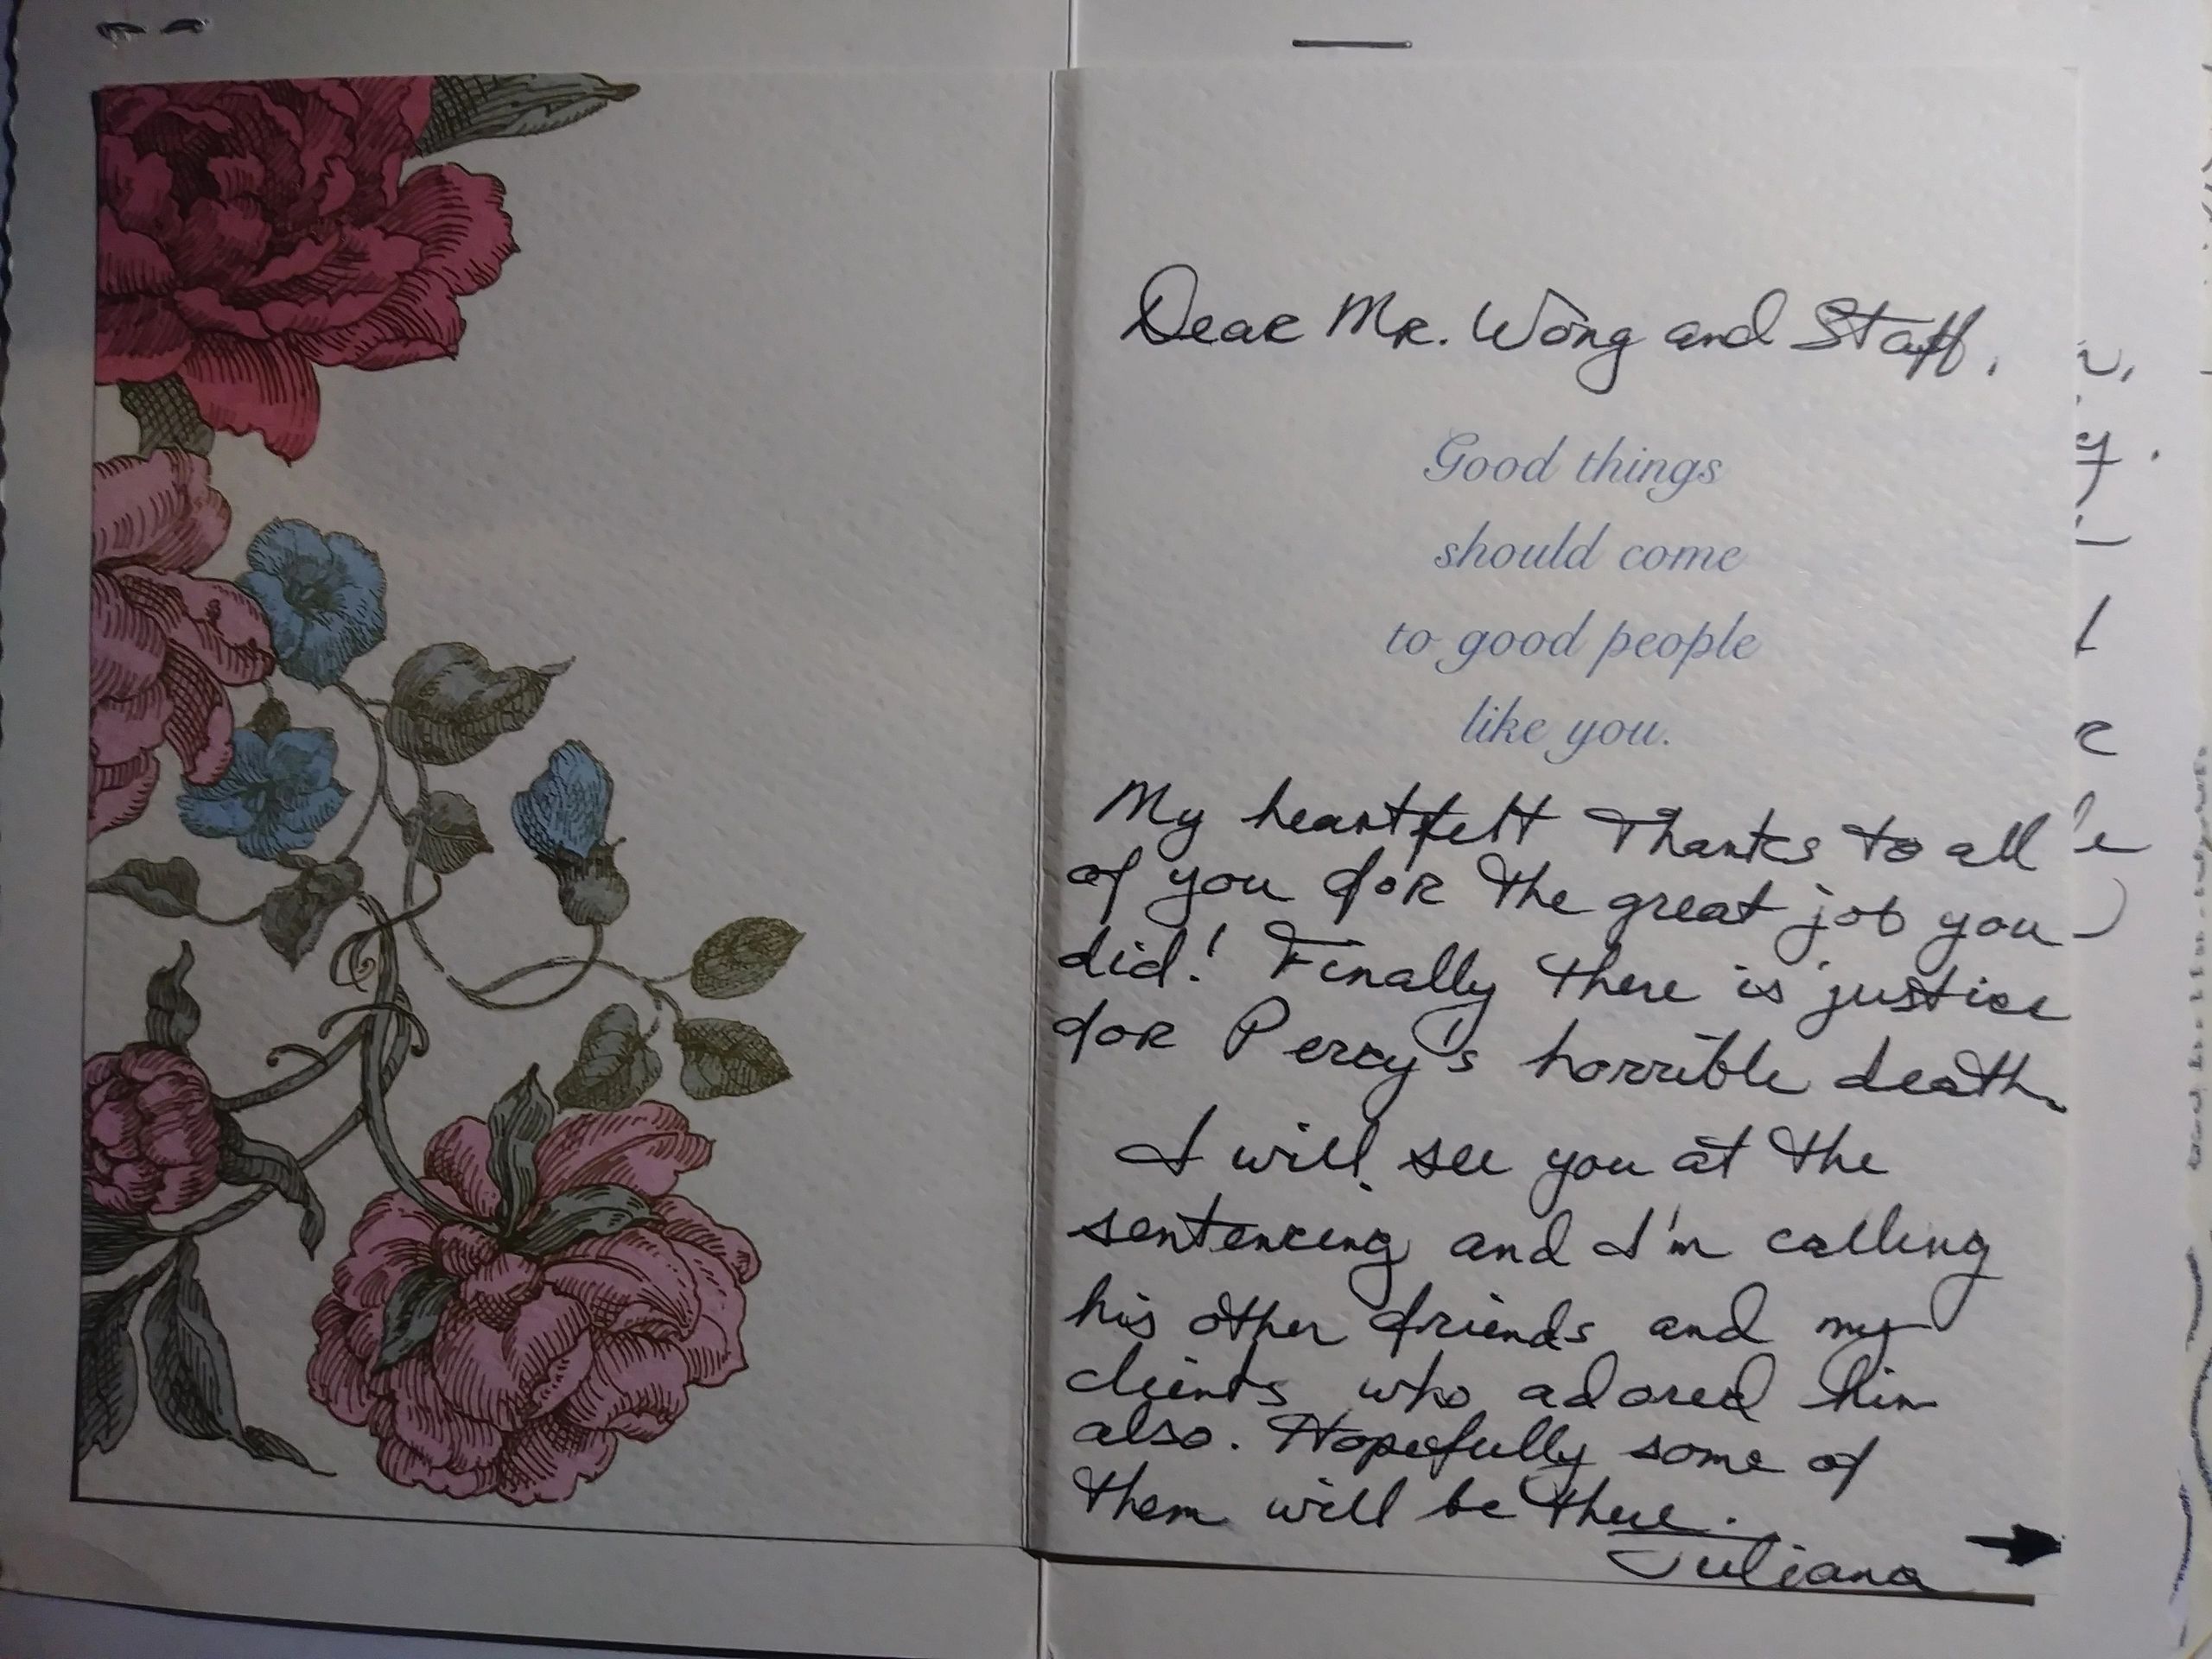 Dear Mr. Wong and Staff,
Good things
should come
to good people
like you.
My heartfelt Thanks to all
of you for the great job you
did! Finally there is justice
for Percy's horrible death.
I will see you at the
sentencing and I'm calling
his other friends and my
clients who adored him
also. Hopefully some of
them will be there.
Juliana